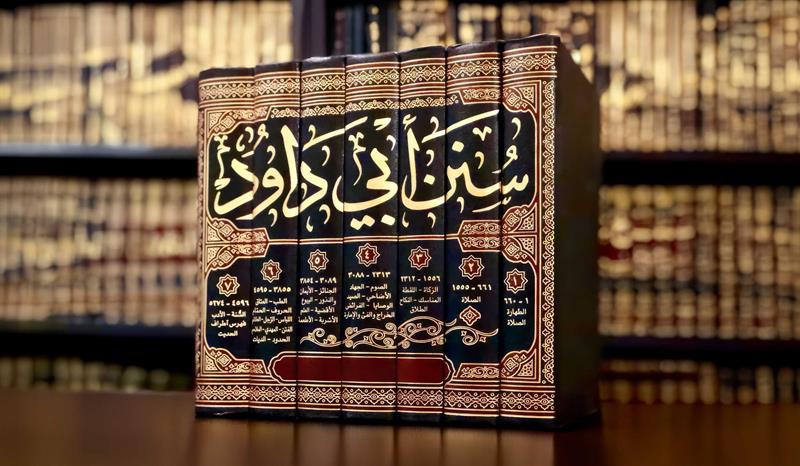 سُنَن أَبِي دَاوُد
١
١ - ٦٦٠
الطهارة
الصلاة
٢
٦٦١ - ١٥٥٥
الصلاة
٣
١٥٥٦ - ٢٣١٢
الزكاة - اللقطة
المناسك - النكاح
الطلاق
٤
٢٣١٣ - ٣٠٨٨
الصوم - الجهاد
الأضاحي - الصيد
الوصايا - الفرائض
الخراج والفيء والإمارة
٥
٣٠٨٩ - ٣٨٥٤
الجنائز - الأيمان
والنذور - البيوع
الأقضية - العلم
الأشربة - الأطعمة
٦
٣٨٥٥ - ٤٥٩٥
الطب - العتاق
الحروف - الحمام
اللباس - الترجل - الخاتم
الفتن - المهدي - الملاحم
الحدود - الديات
٧
٤٥٩٦ - ٥٦٧٤
السُّنة - الأدب
فهرس أطراف
الحديث